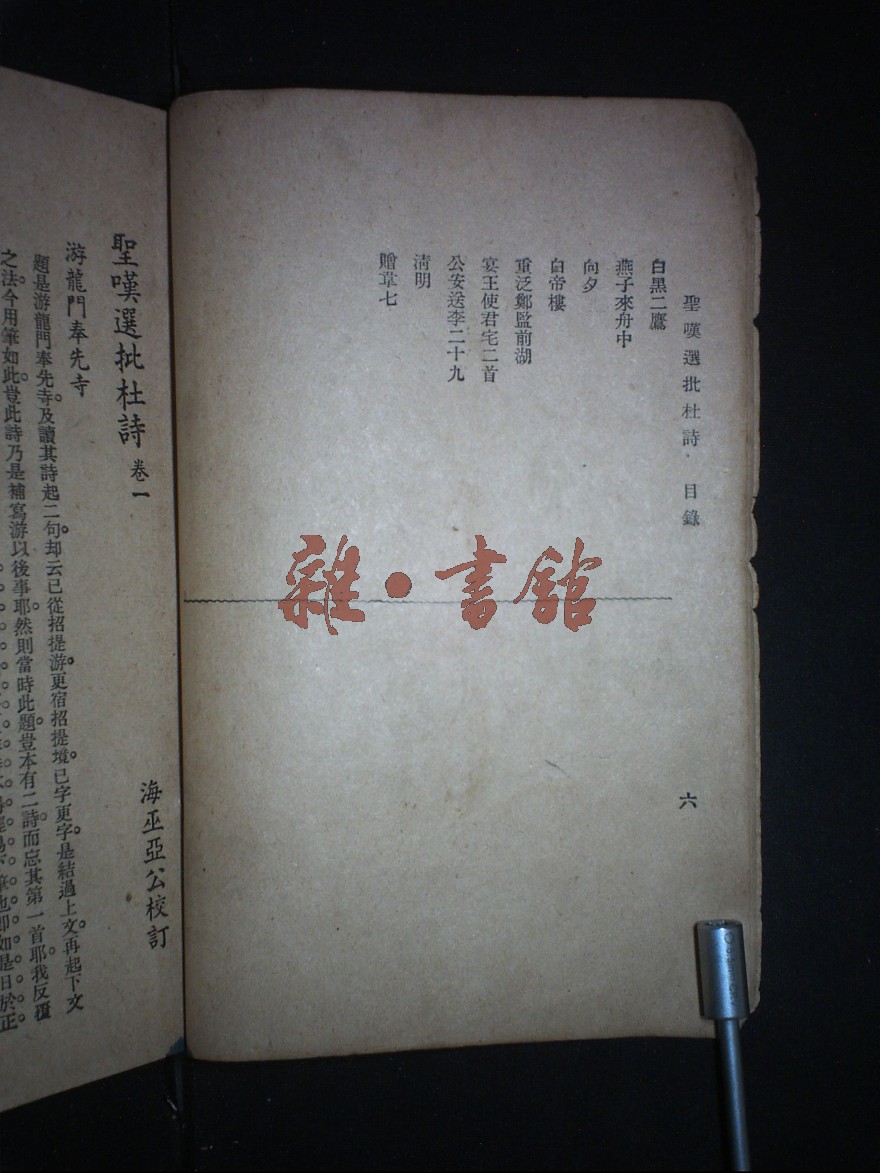 聖嘆選批杜詩 目錄
六
白黑二鷹
燕子來舟中
向夕
白帝樓
重泛鄭監前湖
宴王使君宅二首
公安送李二十九
清明
贈韋七
雜•書館
聖嘆選批杜詩 卷一
海巫亞公校訂
游龍門奉先寺
題是游龍門奉先寺。及讀其詩起二句。却云已從招提游。更宿招提境。已字更字。是結過上文。再起下文
之法。今用筆如此。豈此詩乃是補寫游以後事耶。然則當時此題。豈本有二詩。而忘其第一首耶。我反覆